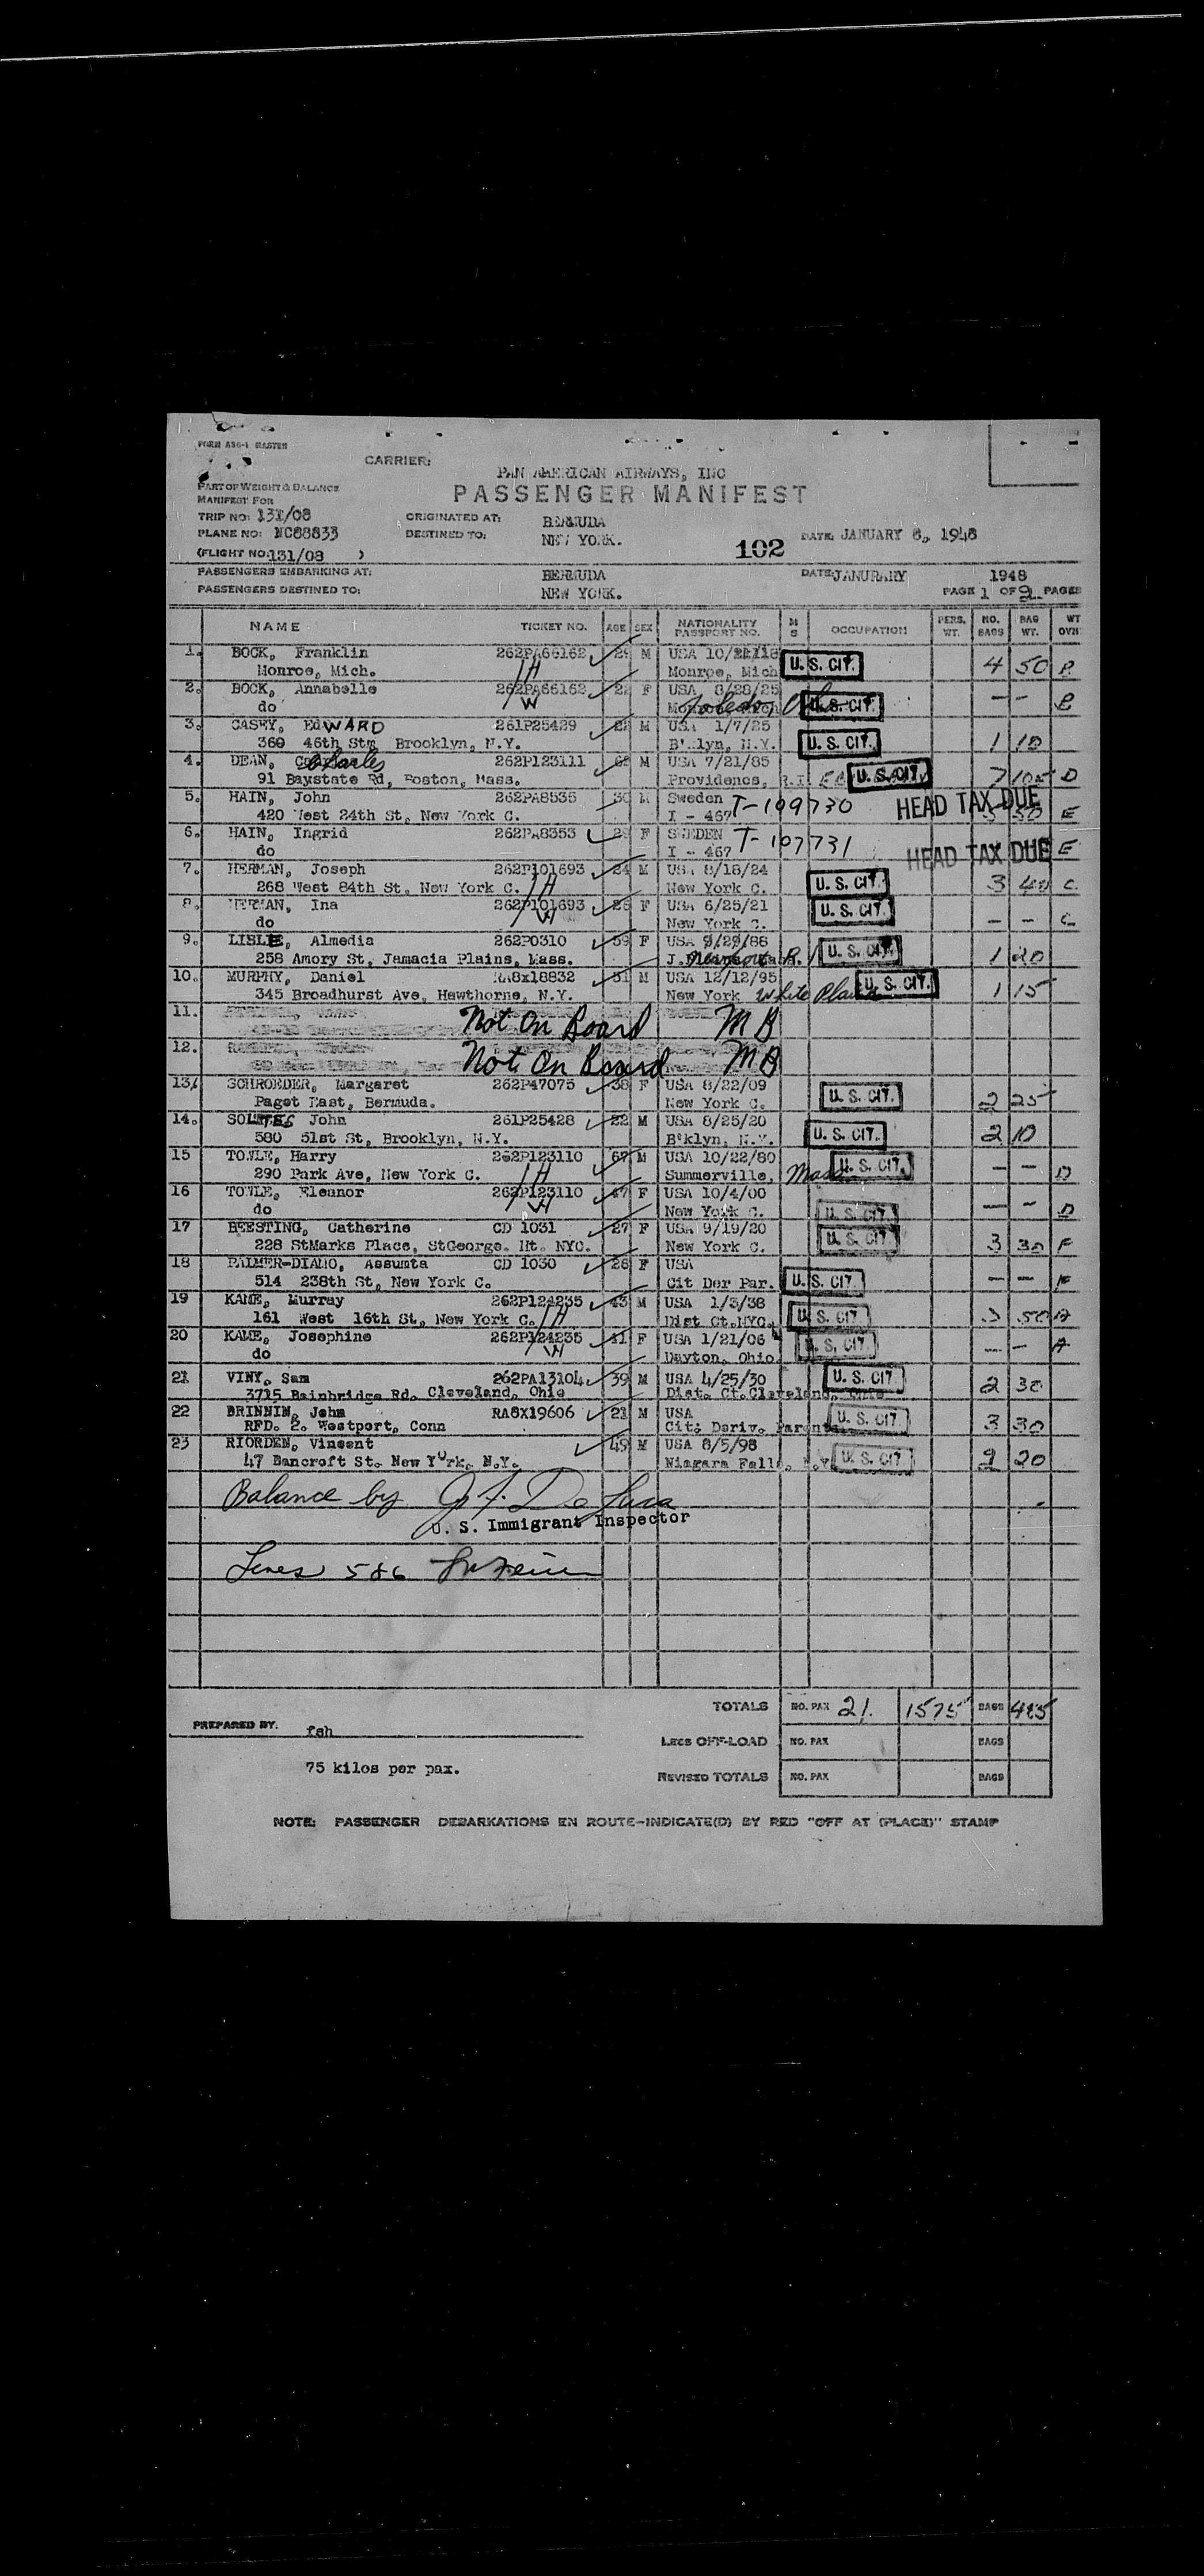 FORM ASG-1 MASTER
CARRIER:
PAN AMERICAN AIRWAYS, INC
PART OF WEIGHT & BALANCE
PASSENGER MANIFEST
MANIFEST FOR
TRIP NO: 131/08 ORIGINATED AT: BERMUDA
PLANE NO: NC88833 DESTINED TO: NEW YORK. 102 DATE: JANUARY 8, 1948
(FLIGHT NO: 131/08 )
PASSENGERS EMBARKING AT: BERMUDA DATE: JANURARY 1948
PASSENGERS DESTINED TO: NEW YORK. PAGE 1 OF 2 PAGES
NAME TICKET NO. AGE SEX NATIONALITY PASSPORT NO. M S OCCUPATION PERS. WT. NO. BAGS BAG WT. WT OVH
1. BOCK, Franklin 262PA66162 29 M USA
Monroe, Mich. H Monroe, Mich U. S. CIT. 4 50 B
2. BOCK, Annabelle 262PA66162 22 F USA 8/28/25
do W Toledo, U. S. CIT. — — B
3. CASEY, EdWARD 261P25429 22 M USA 1/7/25
360 46th St, Brooklyn, N.Y. B'klyn, N.Y. U. S. CIT. 1 10
4. DEAN, Charles 262P123111 62 M USA 7/21/85
91 Baystate Rd, Boston, Mass. Providence, R.I. U. S. CIT. 7 105 D
5. HAIN, John 262PA8535 30 M Sweden T-109730 HEAD TAX DUE
420 West 24th St, New York C. I - 467 3 50 E
6. HAIN, Ingrid 262PA8353 29 F SWEDEN T-107731 HEAD TAX DUE E
do I - 467
7. HERMAN, Joseph 262P101693 24 M USA 8/18/24
268 West 84th St, New York C. H New York C. U. S. CIT. 3 40 C
8. HERMAN, Ina 262P101693 26 F USA 6/25/21
do W New York C. U. S. CIT. — — C
9. LISLE, Almedia 262P0310 59 F USA 9/29/88
258 Amory St, Jamacia Plains, Mass. U. S. CIT. 1 20
10. MURPHY, Daniel RA8x18832 51 M USA 12/12/95
345 Broadhurst Ave, Hawthorne, N.Y. New York White Plains U. S. CIT. 1 15
11. Not On Board MB
12. Not On Board MB
13. SCHROEDER, Margaret 262P47075 38 F USA 8/22/09
Paget East, Bermuda. New York C. U. S. CIT. 2 25
14. John 261P25428 22 M USA 8/25/20
580 51st St, Brooklyn, N.Y. B'klyn, N.Y. U. S. CIT. 2 10
15 TOWLE, Harry 262P123110 67 M USA 10/22/80
290 Park Ave, New York C. H Summerville, Mass U. S. CIT. — — D
16 TOWLE, Eleanor 262P123110 47 F USA 10/4/00
do W New York C. U. S. CIT. — — D
17 BEESTING, Catherine CD 1031 27 F USA 9/19/20
228 StMarks Place, StGeorge. Ht. NYC. New York C. U. S. CIT. 3 30 F
18 PALMER-DIANO, Assunta CD 1030 26 F USA
514 238th St, New York C. Cit Der Par. U. S. CIT. — — F
19 KAME, Murray 262P124235 43 M USA 1/3/38
161 West 16th St, New York C. H Dist Ct.NYC. U. S. CIT. 3 50 A
20 KAME, Josephine 262P124235 41 F USA 1/21/06
do W Dayton, Ohio. U. S. CIT. — — A
21 VINY, Sam 262PA13104 39 M USA 4/25/30
3715 Bainbridge Rd, Cleveland, Ohio Dist. Ct.Cleveland, U. S. CIT. 2 30
22 BRINNIN, John RA8X19606 21 M USA
RFD. 2. Westport, Conn Cit: Deriv. Parents U. S. CIT. 3 30
23 RIORDEN, Vincent 49 M USA 8/5/98
47 Bancroft St. New York, N.Y. Niagara Falls, N.Y. U. S. CIT. 2 20
Balance by J. F. De Luca
U. S. Immigrant Inspector
Lines 5&6
TOTALS NO. PAX 21. 1575 BAGS 485
PREPARED BY: fsh
LESS OFF-LOAD NO. PAX BAGS
75 kilos per pax.
REVISED TOTALS NO. PAX BAGS
NOTE: PASSENGER DEBARKATIONS EN ROUTE-INDICATE(D) BY RED "OFF AT (PLACE)" STAMP